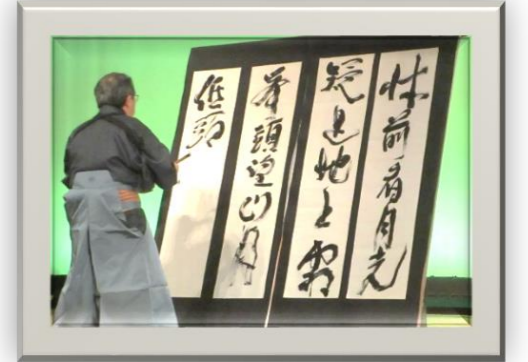 牀前看月光
疑是地上霜
挙頭望山月
低頭